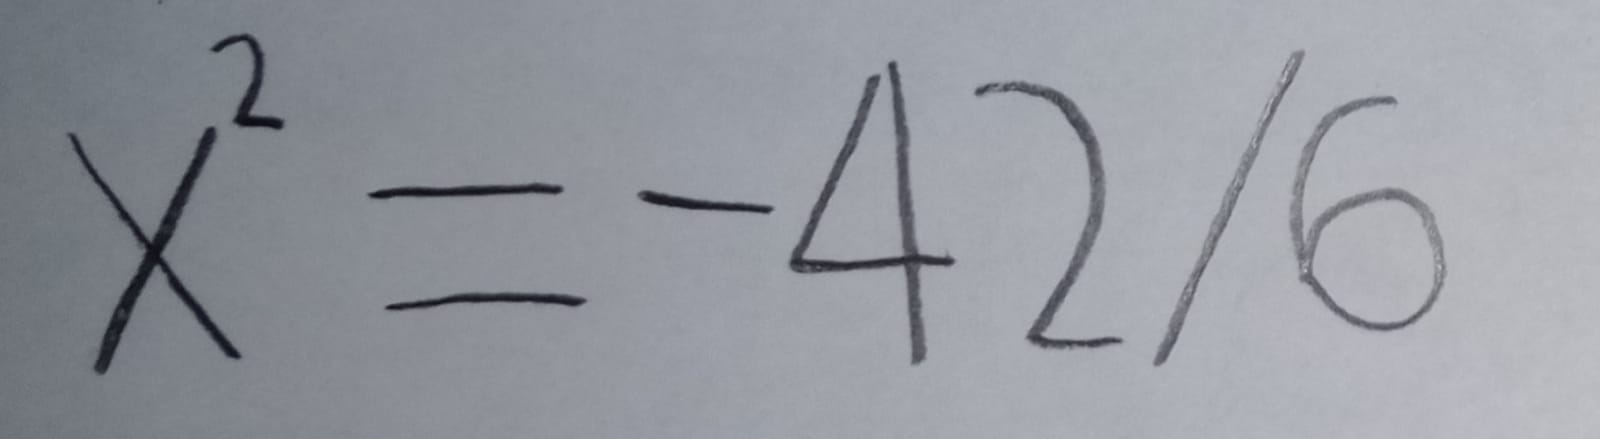 x² = -42/6